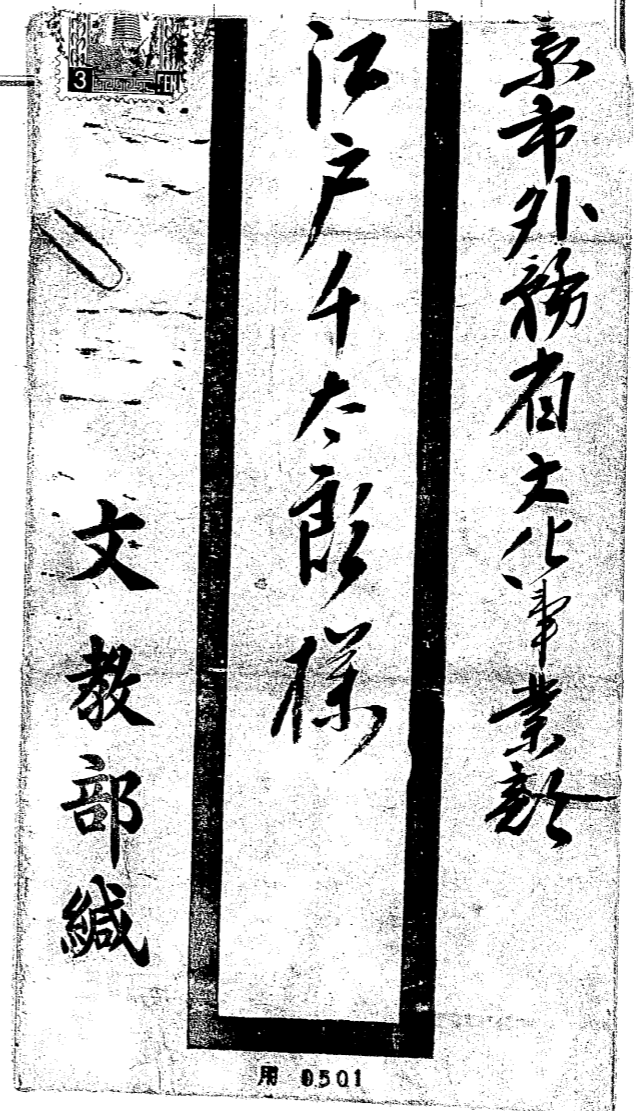 京市外務省文化事業部
江戸千太郎様
文教部緘
3
用 0501